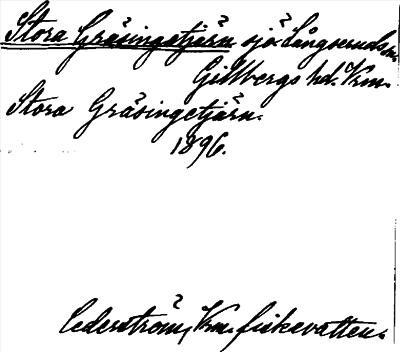 Stora Gräsingetjärn sjö i Långseruds sn.
Gillbergs hd. Vrm.
Stora Gräsingetjärn.
1896.
Cederström, Vrm. fiskevatten.